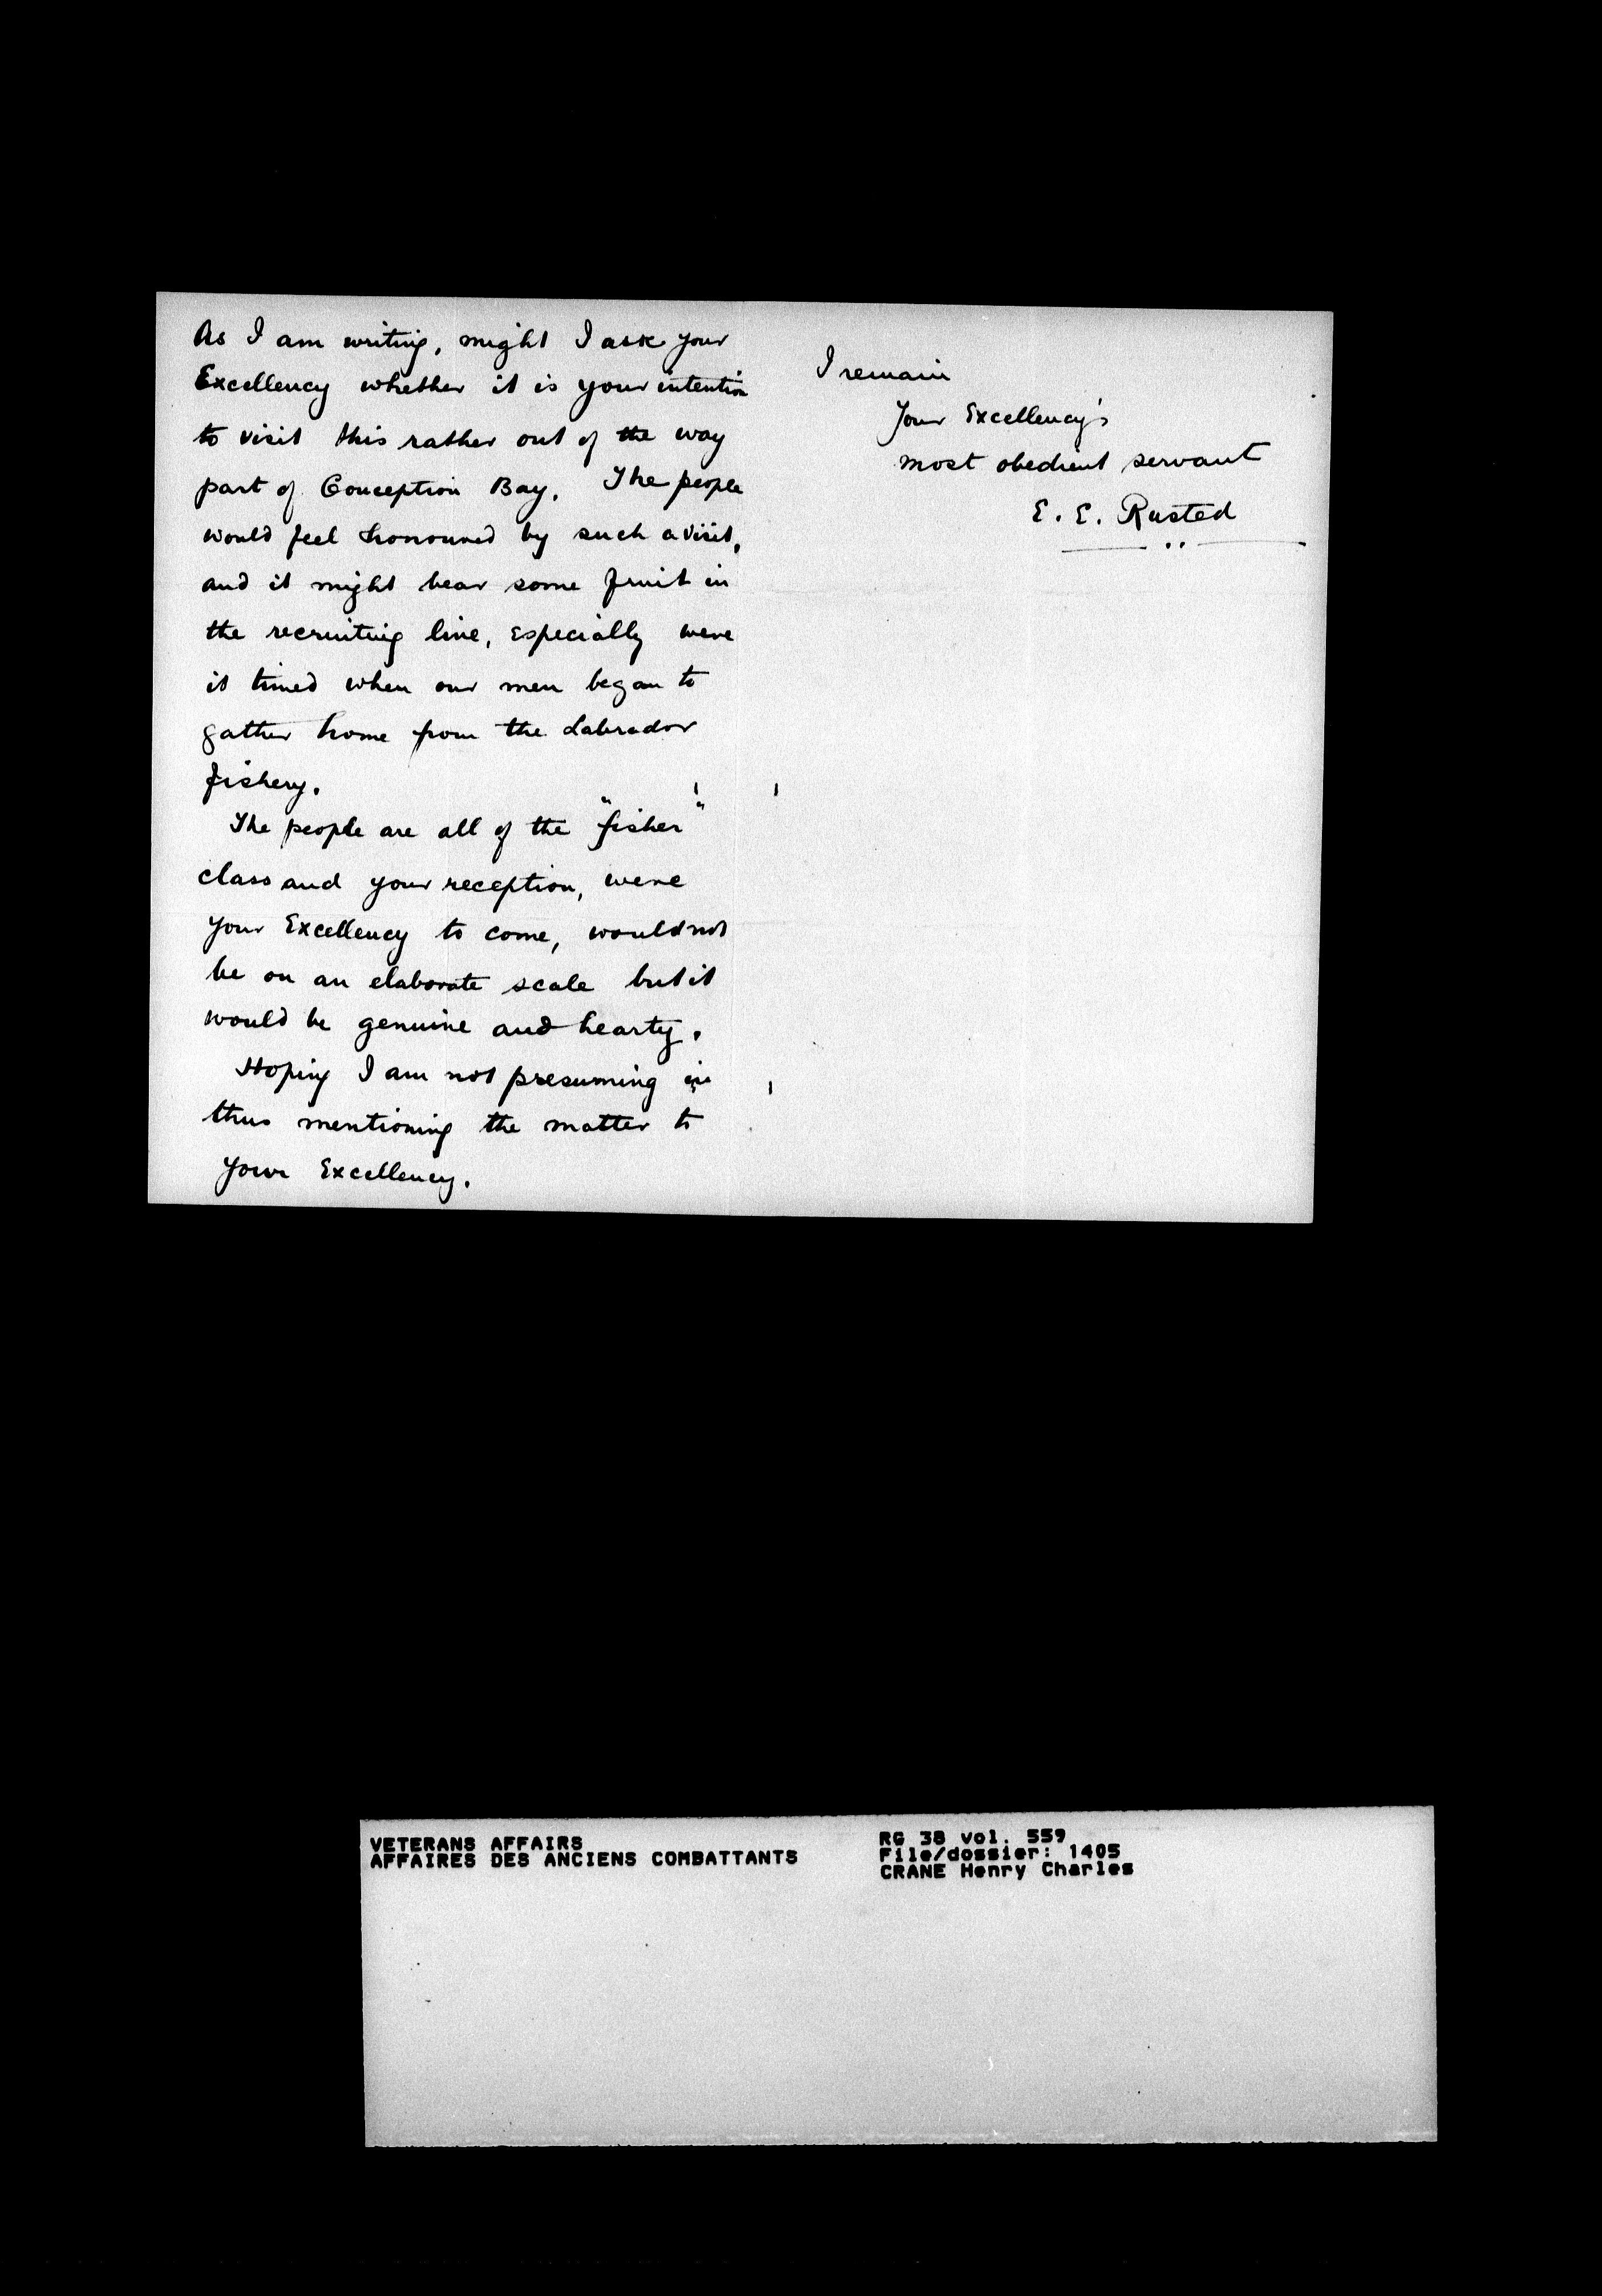 As I am writing, might I ask your
Excellency whether it is your intention
to visit this rather out of the way
part of Conception Bay. The people
would feel honoured by such a visit,
and it might bear some fruit in
the recruiting line, especially were
it timed when our men began to
gather home from the Labrador
fishery.
The people are all of the "fisher"
class and your reception, were
your Excellency to come, would not
be on an elaborate scale but it
would be genuine and hearty.
Hoping I am not presuming in
thus mentioning the matter to
your Excellency.
I remain
Your Excellency's
most obedient servant
E. E. Rusted
VETERANS AFFAIRS
AFFAIRES DES ANCIENS COMBATTANTS
RG 38 vol. 559
File/dossier: 1405
CRANE Henry Charles